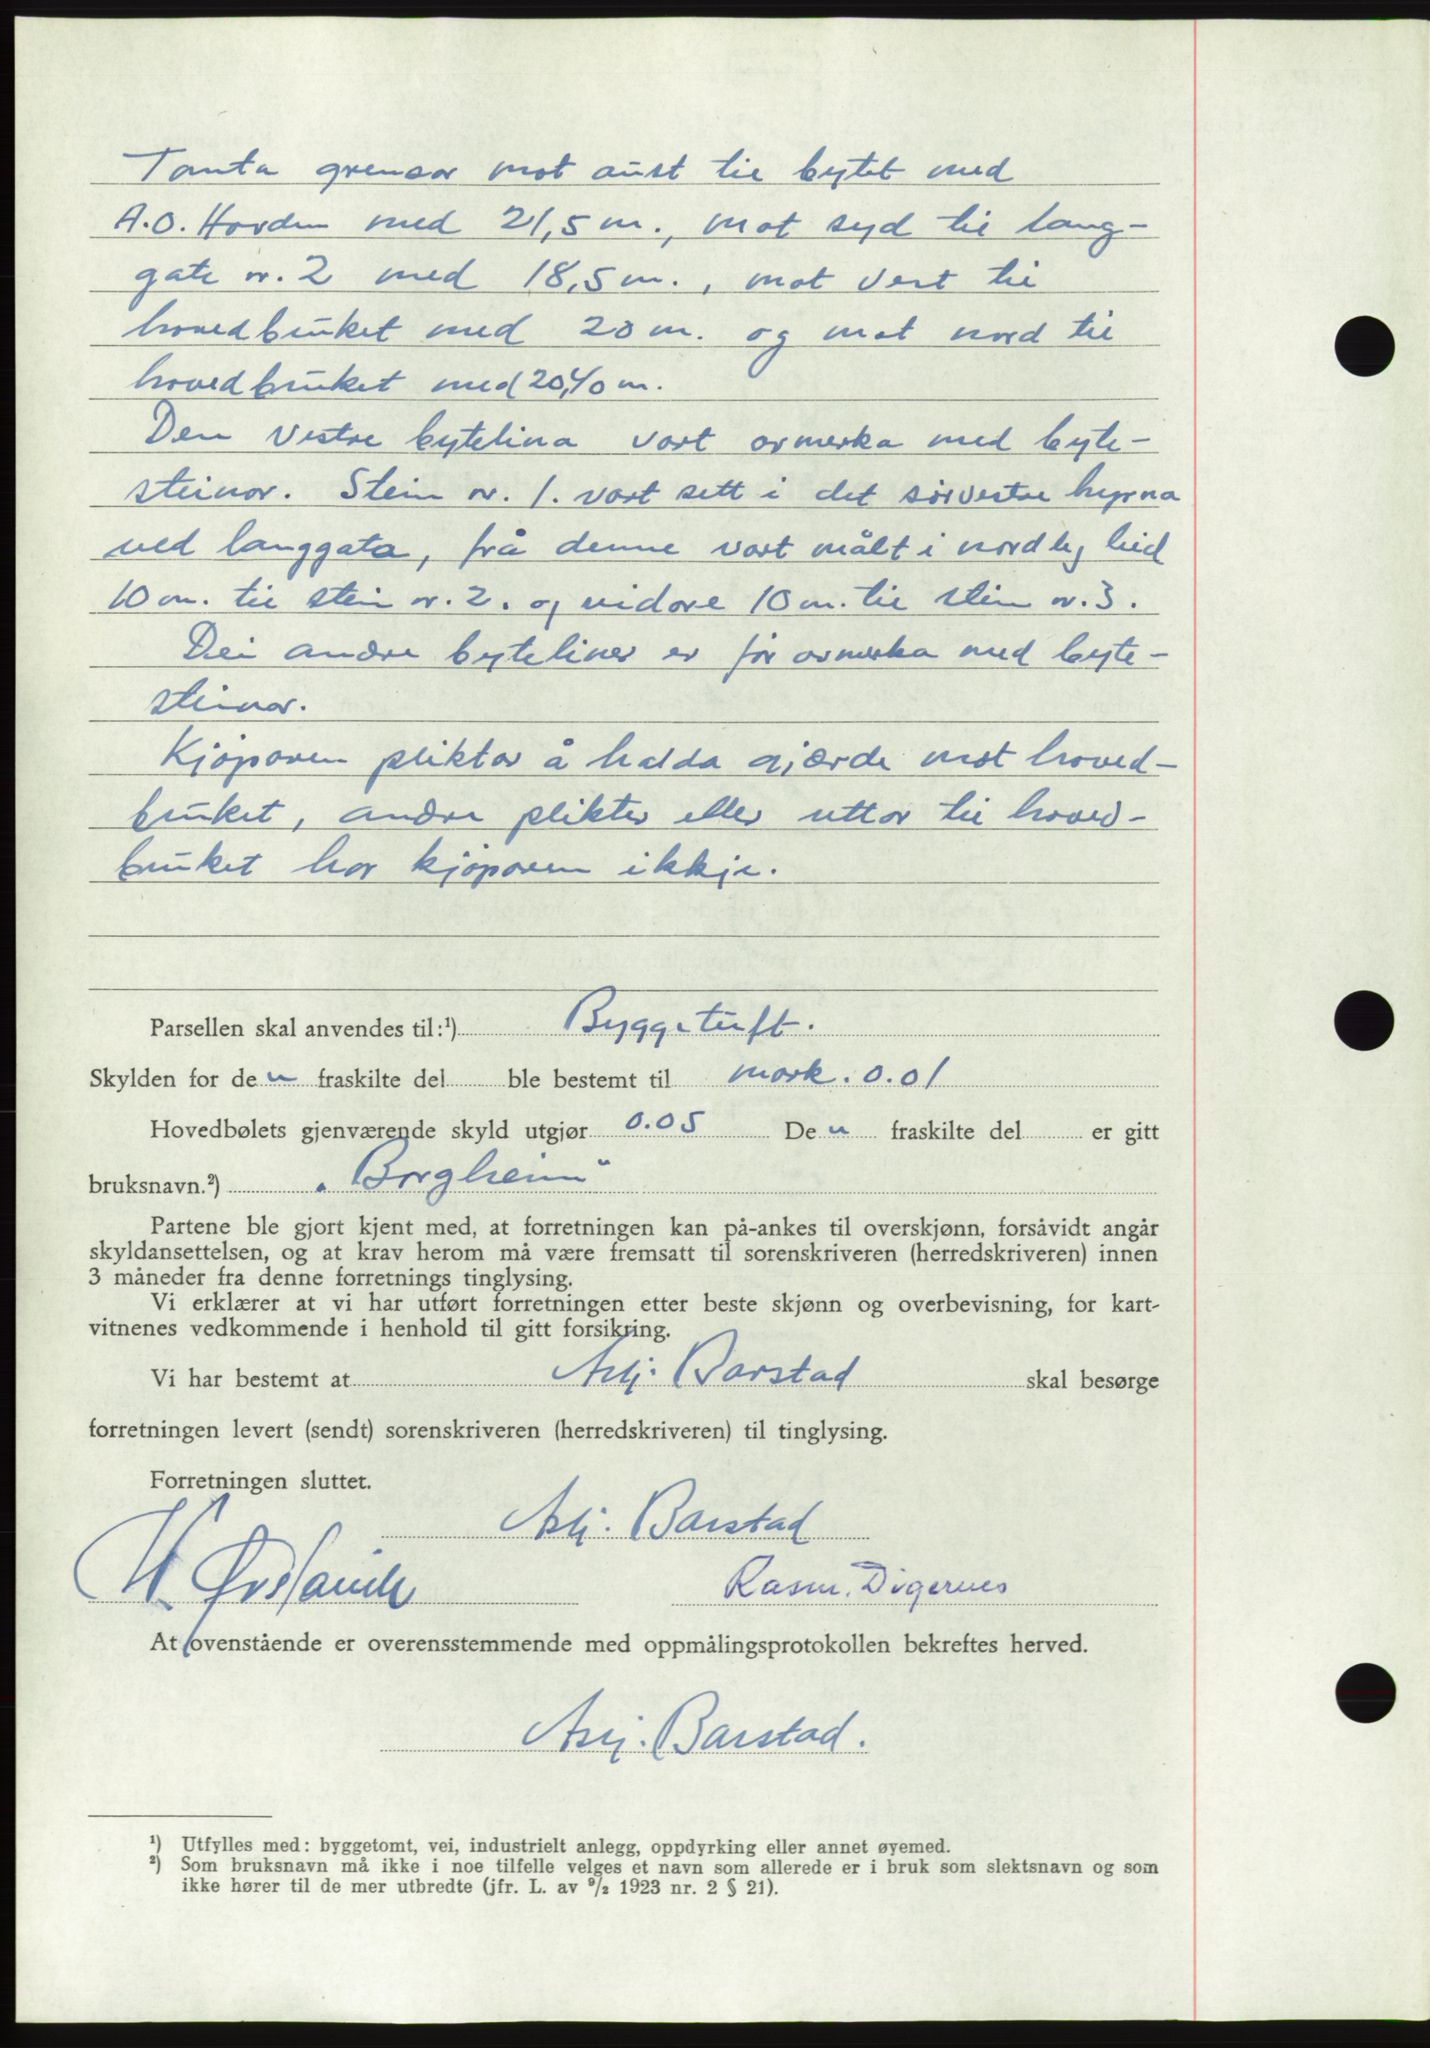 Tomta grensar mot aust til bytet med
A.O. Hovden med 21,5 m., mot syd til lang-
gate nr. 2 med 18,5 m., mot vest til
hovedbruket med 20 m. og mot nord til
hovedbruket med 20,40 m.
Den vestre bytelina vart avmerka med byte-
steinar. Stein nr. 1. vart sett i det sørvestre hyrna
ved langgata, frå denne vart målt i nordleg leid
10 m. til stein nr. 2. og vidare 10 m. til stein nr. 3.
Dei andre byteliner er før avmerka med byte-
steinar.
Kjøparen pliktar å halda gjærde mot hoved-
bruket, andre plikter eller uttar til hoved-
bruket har kjøparen ikkje.
Parsellen skal anvendes til:¹) Byggetuft.
Skylden for den fraskilte del ble bestemt til mark. 0.01
Hovedbølets gjenværende skyld utgjør 0.05 Den fraskilte del er gitt
bruksnavn.²) „Borgheim"
Partene ble gjort kjent med, at forretningen kan på-ankes til overskjønn, forsåvidt angår
skyldansettelsen, og at krav herom må være fremsatt til sorenskriveren (herredskriveren) innen
3 måneder fra denne forretnings tinglysing.
Vi erklærer at vi har utført forretningen etter beste skjønn og overbevisning, for kart-
vitnenes vedkommende i henhold til gitt forsikring.
Vi har bestemt at Asbj. Barstad skal besørge
forretningen levert (sendt) sorenskriveren (herredskriveren) til tinglysing.
Forretningen sluttet.
Asbj. Barstad
Rasm. Digernes
At ovenstående er overensstemmende med oppmålingsprotokollen bekreftes herved.
Asbj. Barstad.
¹) Utfylles med: byggetomt, vei, industrielt anlegg, oppdyrking eller annet øyemed.
²) Som bruksnavn må ikke i noe tilfelle velges et navn som allerede er i bruk som slektsnavn og som
ikke hører til de mer utbredte (jfr. L. av ⁹/₂ 1923 nr. 2 § 21).